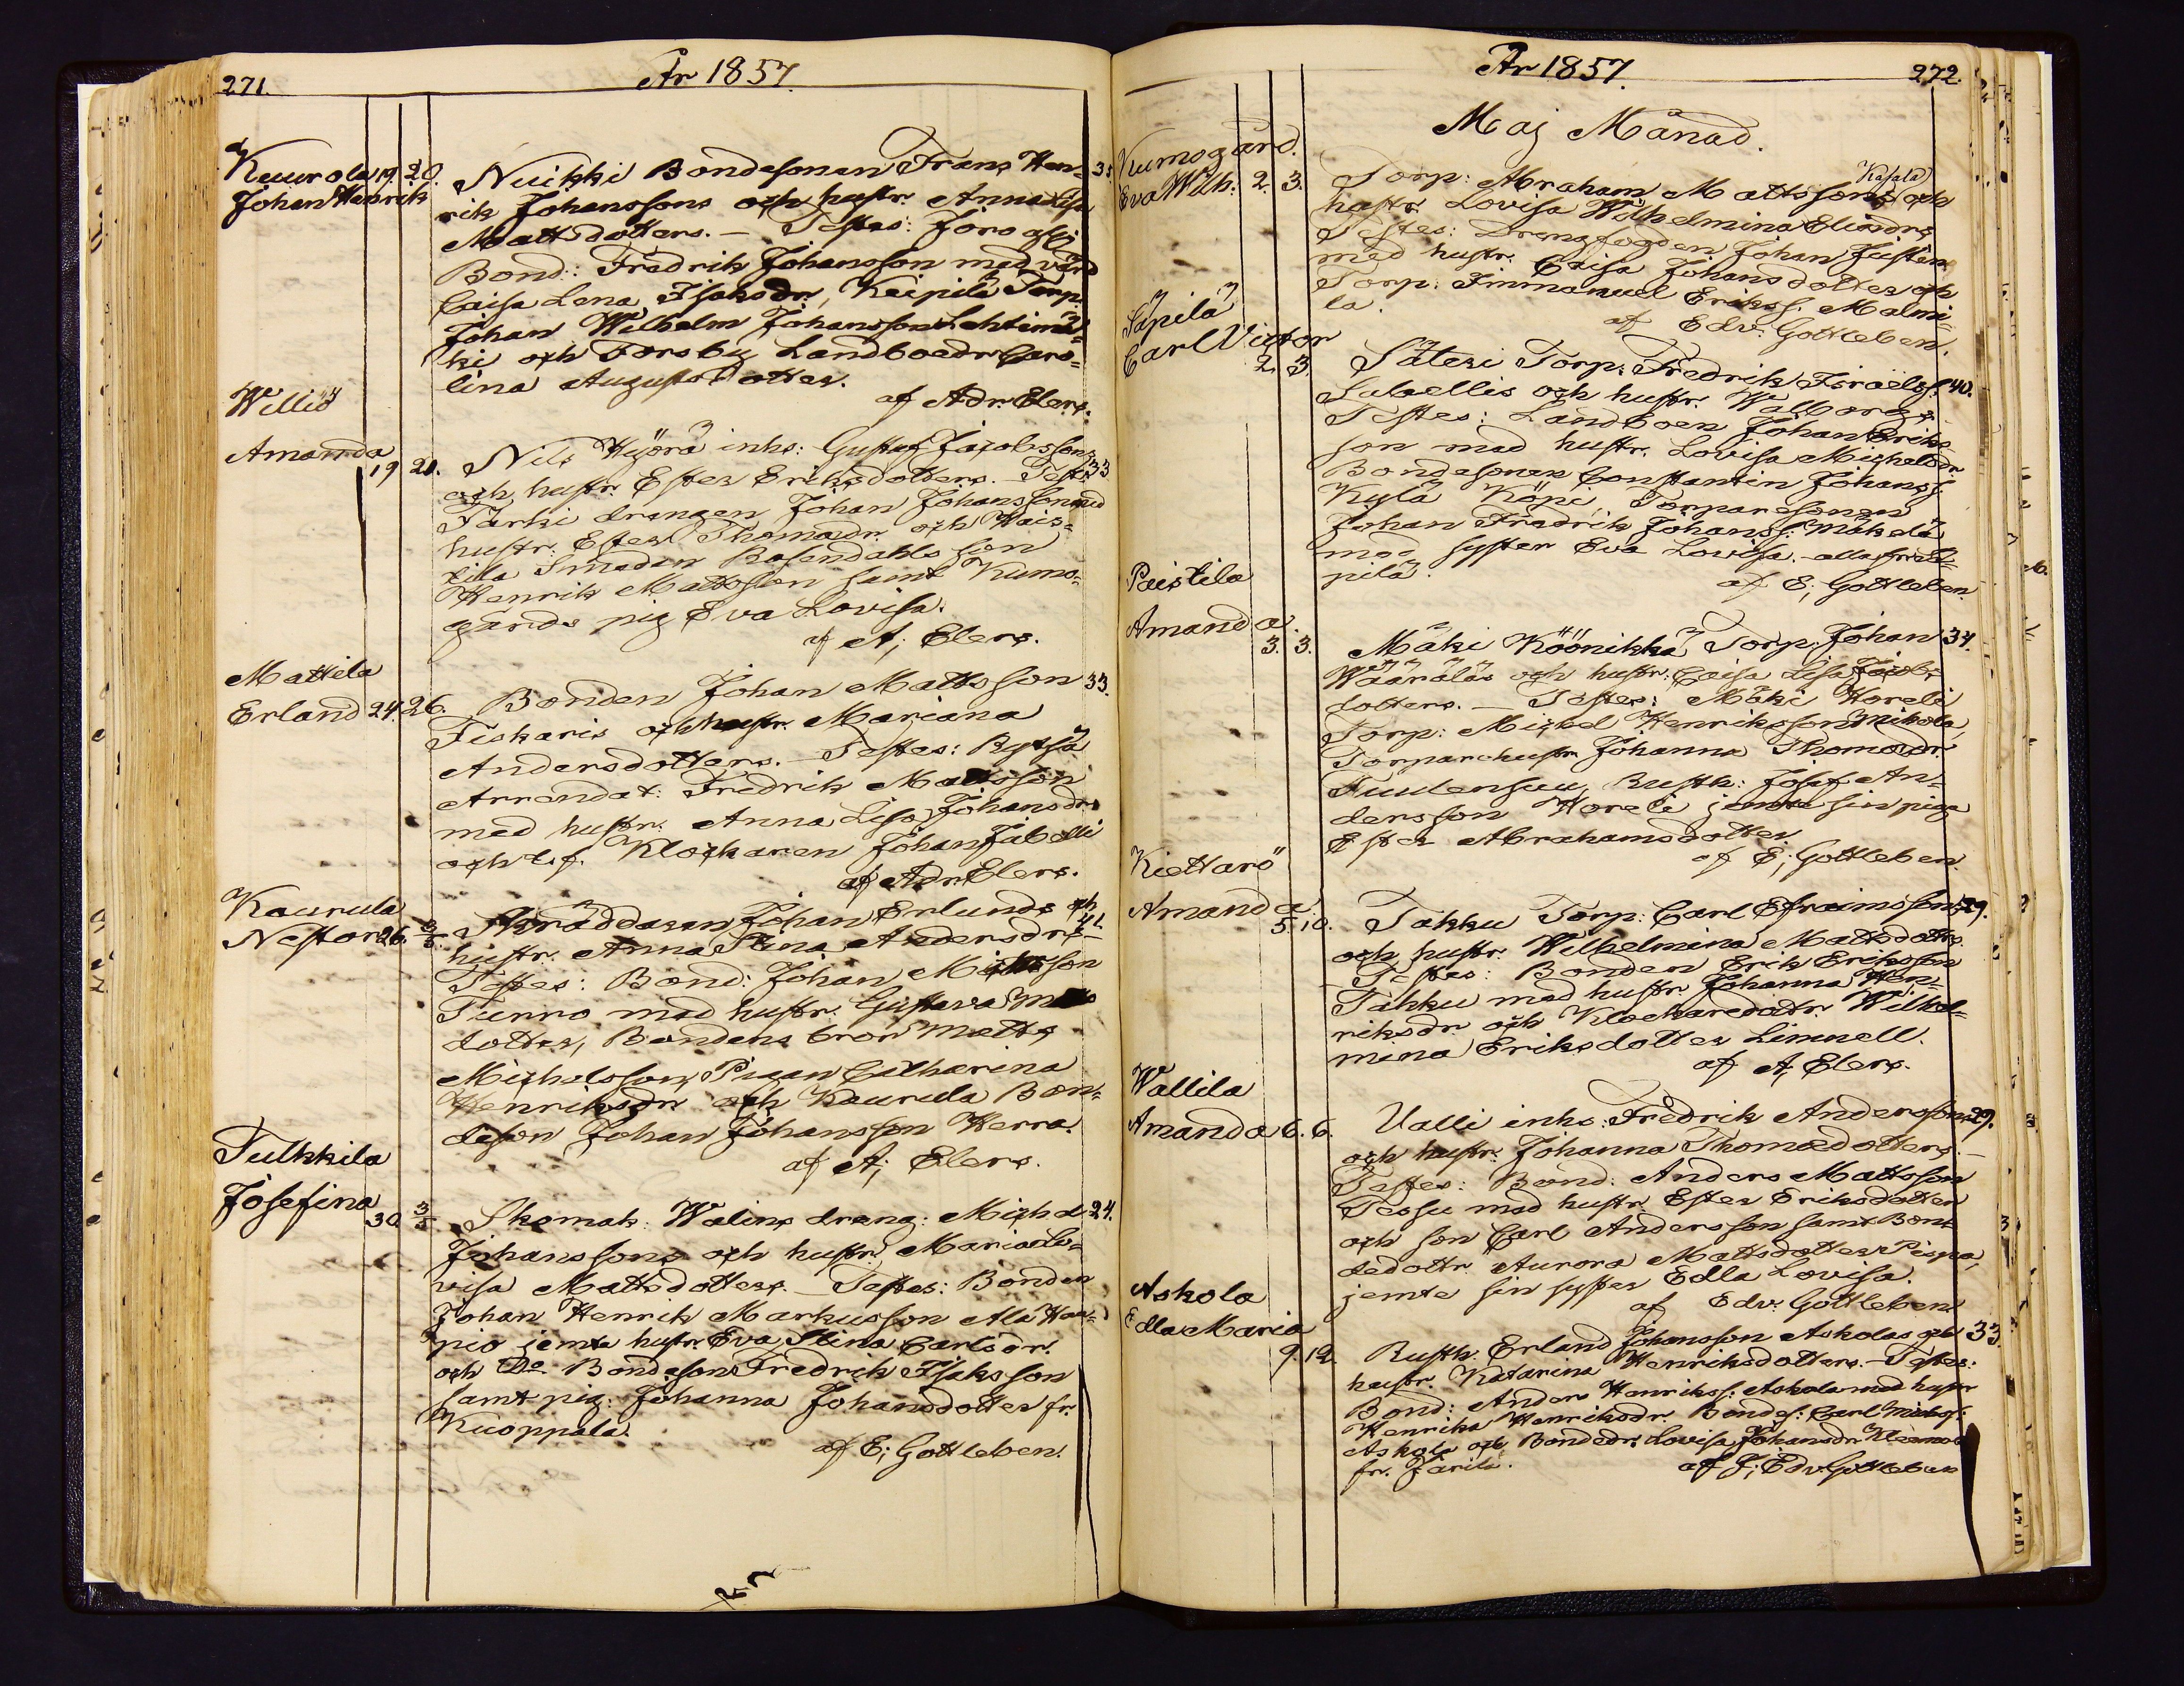 271.
År 1857.
Kuurola 19. 20. Nuikki Bondesonen Frans Hen- 35
Johan Henrik rik Johanssons och hustr. Anna Lisa
Mattsdotters. — Testes: Jöro
Bond: Fredrik Johansson med värd
Caisa Lena Isaksdr, Keipilä Torp.
Johan Wilhelm Johansson Lehtimä-
ki och Forsby Landboedr Caro-
lina Augustsdotter.
af Adr. Elers.
Williö
Amanda
19 21. Nils Hyörä inhs: Gustaf Jacobssons 33
och hustr. Ester Eriksdotters. — Test:
Färki drengen Johan Johansson med
hustr. Ester Thomasdr. och Wais-
tila Smeden Rosendahls son
Henrik Mattsson samt Kumo-
gårds pig Eva Lovisa.
af A; Elers.
Mattila
Erland 24. 26. Bonden Johan Mattsson 33.
Fiskaris och hustr. Mariana
Andersdotters. — Testes: Rytsä
Arrendat: Fredrik Mattsson
med hustr. Anna Lisa Johansdr
och Klockaren Johan
af Adr. Elers.
Kaurula
Nestor 26. 3/5. Skräddaren Johan Erlunds och 41.
hustr. Anna Stina Andersdrs —
Testes: Bond: Johan Michelsson
Turro med hustr. Gustava Matts
dotter, Bondens bror Matts
Michelsson, Pigan Catharina
Henriksdr och Kaurula Bon-
deson Johan Johansson Herra.
af A; Elers.
Tulkkila
Josefina
30. 3/5 Skomak: Walins dreng: Michel 24.
Johanssons och hustr. Maria Lo-
visa Mattsdotters. — Testes: Bonden
Johan Henrik Markusson Ala Haa-
pio jemte hustr. Eva Stina Carlsdr.
och Do Bondeson Fredrik Isaksson
samt pig: Johanna Johansdotter fr.
Kuoppala.
af E; Gottleben.
År 1857.
272.
Maj Månad.
Kumogård.
Kasala
Eva Wilh: 2. 3. Torp: Abraham Mattssons och
hustr. Lovisa Wilhelmina Eliædrs
Testes: Drengfogden Johan Justén
med hustr. Caisa Johansdotter och
Torp: Immanuel Erikss. Malmi-
la.
af Edv: Gottleben.
Säpilä
Carl Victor
2. 3. Säteri Torp: Fredrik Israels. 40.
Sabellis och hustr. Wallborgs
Testes: Landboen Johan Eriks-
son med hustr. Lovisa Michelsdr
Bondesonen Constantin Johanss.
Kylä Köpi Torparesonen
Johan Fredrik Johanss. Mäkelä
med syster Eva Lovisa. — alla fr. Sä-
pilä.
af E; Gottleben.
Peistila
Amanda
3. 3. Mäki Köönikkä Torp: Johan 34.
Wäärälös och hustr. Caisa Lisa Jacobs
dotters. — Testes: Mäki Horeli
Torp: Michel Henriksson Mikola,
Torparehustr. Johanna Thomædr.
Tuulensuu, Rusth: Josef An-
dersson Horeli jemte sin piga
Ester Abrahamsdotter
af E; Gottleben.
Kiettarö
Amanda
5. 10. Takku Torp: Carl Efraimsson 29.
och hustr. Wilhelmina Mattsdotts.
Testes: Bonden Erik Eriksson
Takku med hustr. Johanna Hen-
riksdr och Klockaredotr. Wilhel-
mina Eriksdotter Limnell.
af A; Elers.
Wallila
Amanda 6. 6. Ualli inhs: Fredrik Anderssons 29.
och hustr. Johanna Thomædotters. —
Testes: Bond: Anders Mattsson
Tessu med hustr. Ester Eriksdotter
och son Carl Andersson samt Bon-
dedottr. Aurora Mattsdotter Pispa,
jemte sin syster Edla Lovisa.
af Edv: Gottleben.
Askola
Edla Maria
9. 12. Rusth. Erland Johansson Askolas och 33.
hustr. Katarina Henriksdotters. — Testes:
Bond: Anders Henrikss. Askola med hustr
Henrika Henriksdr. Bondes: Carl Michelss:
Askola och Bondedr. Lovisa Johansdr
fr. Järilä.
af J; Edv Gottleben